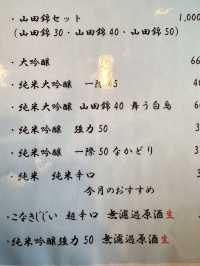 ・山田錦セット 1,000
(山田錦30・山田錦40・山田錦50)
・大吟醸 66
・純米大吟醸 一際 45 40
・純米大吟醸 山田錦40 舞う白鳥 6
・純米吟醸 強力50 3
・純米吟醸 一際50なかどり 3
・純米 純米辛口 3
今月のおすすめ
・こなきじじい 超辛口 無濾過原酒生
・純米吟醸強力50 無濾過原酒生